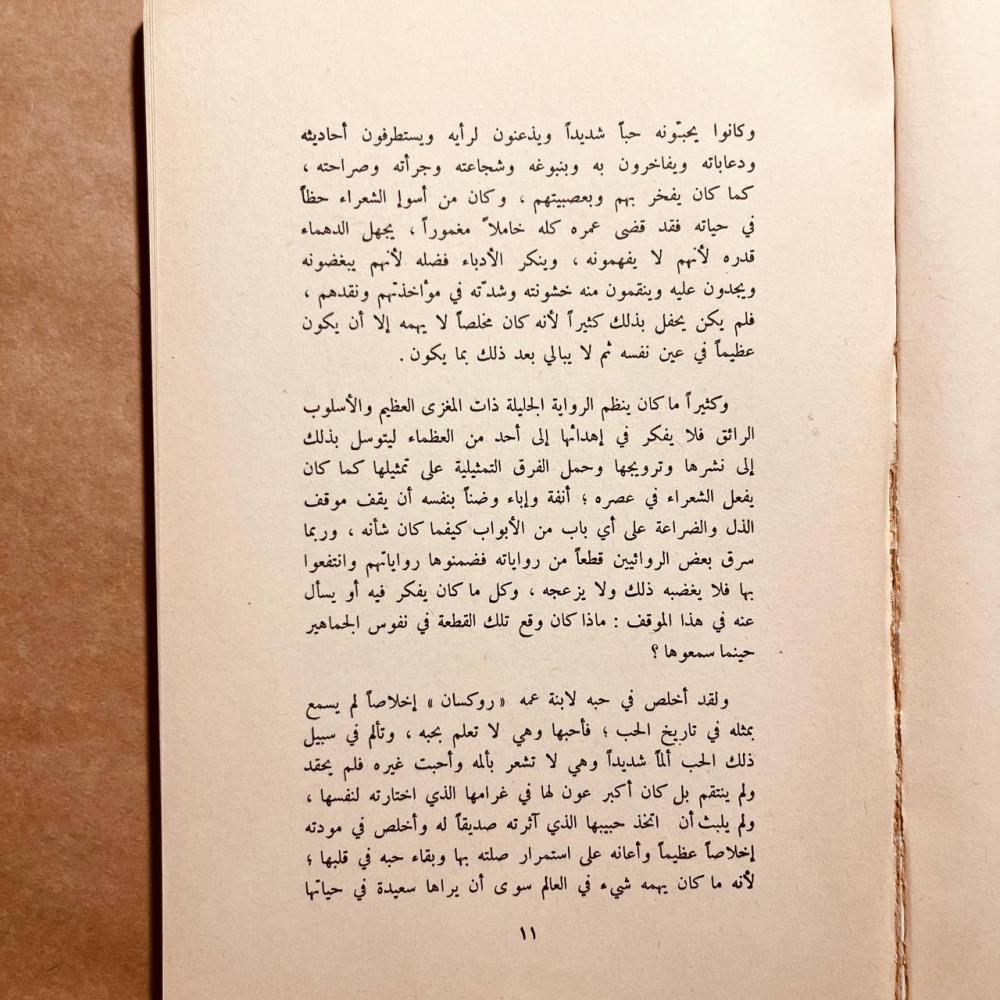 وكانوا يحبّونه حباً شديداً ويذعنون لرأيه ويستطرفون أحاديثه
ودعاباته ويفاخرون به وبنبوغه وشجاعته وجرأته وصراحته ،
كما كان يفخر بهم وبعصبيتهم ، وكان من أسوإ الشعراء حظاً
في حياته فقد قضى عمره كله خاملاً مغموراً ، يجهل الدهماء
قدره لأنهم لا يفهمونه ، وينكر الأدباء فضله لأنهم يبغضونه
ويجدون عليه وينقمون منه خشونته وشدّته في مؤاخذتهم ونقدهم ،
فلم يكن يحفل بذلك كثيراً لأنه كان مخلصاً لا يهمه إلا أن يكون
عظيماً في عين نفسه ثم لا يبالي بعد ذلك بما يكون .
وكثيراً ما كان ينظم الرواية الجليلة ذات المغزى العظيم والأسلوب
الرائق فلا يفكر في إهدائها إلى أحد من العظماء ليتوسل بذلك
إلى نشرها وترويجها وحمل الفرق التمثيلية على تمثيلها كما كان
يفعل الشعراء في عصره ؛ أنفة وإباء وضناً بنفسه أن يقف موقف
الذل والضراعة على أي باب من الأبواب كيفما كان شأنه ، وربما
سرق بعض الروائيين قطعاً من رواياته فضمنوها رواياتهم وانتفعوا
بها فلا يغضبه ذلك ولا يزعجه ، وكل ما كان يفكر فيه أو يسأل
عنه في هذا الموقف : ماذا كان وقع تلك القطعة في نفوس الجماهير
حينما سمعوها ؟
ولقد أخلص في حبه لابنة عمه « روكسان » إخلاصاً لم يسمع
بمثله في تاريخ الحب ؛ فأحبها وهي لا تعلم بحبه ، وتألم في سبيل
ذلك الحب ألماً شديداً وهي لا تشعر بألمه وأحبت غيره فلم يحقد
ولم ينتقم بل كان أكبر عون لها في غرامها الذي اختارته لنفسها ،
ولم يلبث أن اتخذ حبيبها الذي آثرته صديقاً له وأخلص في مودته
إخلاصاً عظيماً وأعانه على استمرار صلته بها وبقاء حبه في قلبها ؛
لأنه ما كان يهمه شيء في العالم سوى أن يراها سعيدة في حياتها
١١